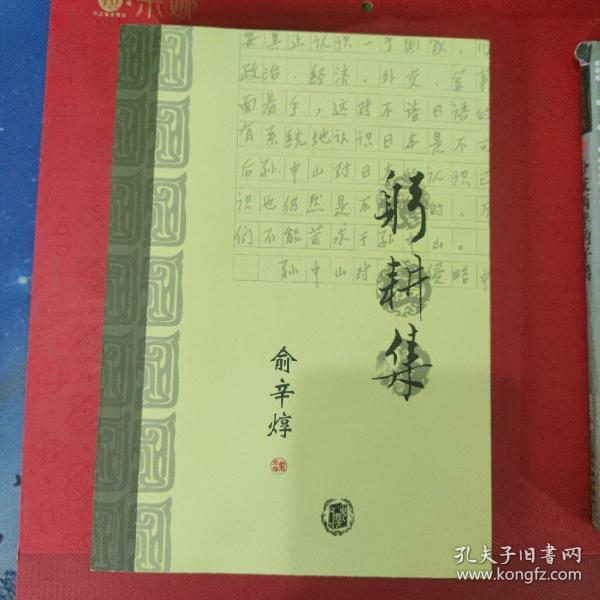 要真正认识一个国家，
政治、经济、外交、军事
面着手，这对不谙日语的
有系统地认识日本是不可
后孙中山对日本的认识已
识也仍然是不 的、不
们不能苛求于孙中山。
孙中山对 侵略中
躬耕集
俞辛焞
孔夫子旧书网
www.kongfz.com